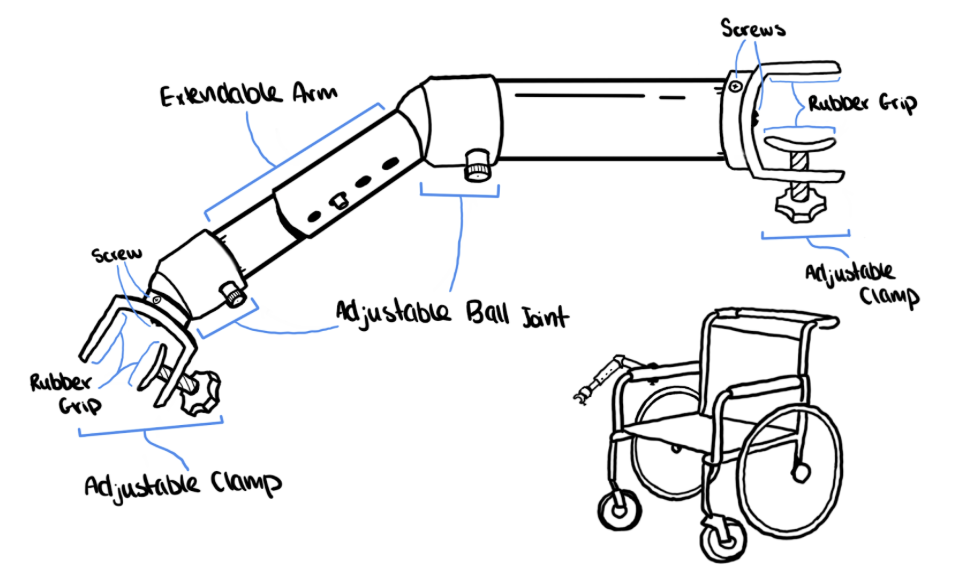 Screws
Extendable Arm
Rubber Grip
Screw
Adjustable
Clamp
Adjustable Ball Joint
Rubber
Grip
Adjustable Clamp